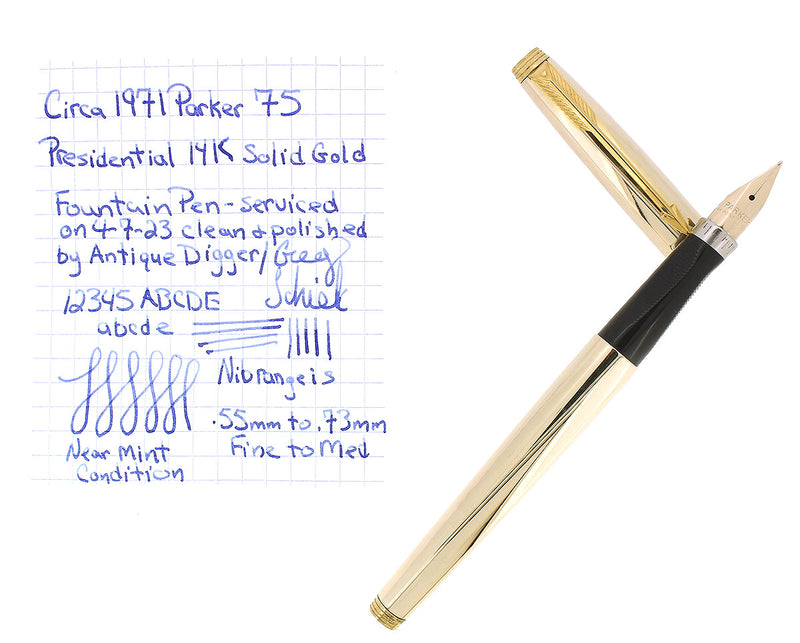 Circa 1971 Parker 75
Presidential 14K Solid Gold
Fountain Pen - serviced
on 4-7-23 clean & polished
by Antique Digger/Greg
Schiel
12345 ABCDE
abcde
Nib range is
.55mm to .73mm
Fine to Med
Near Mint
Condition
PARKER